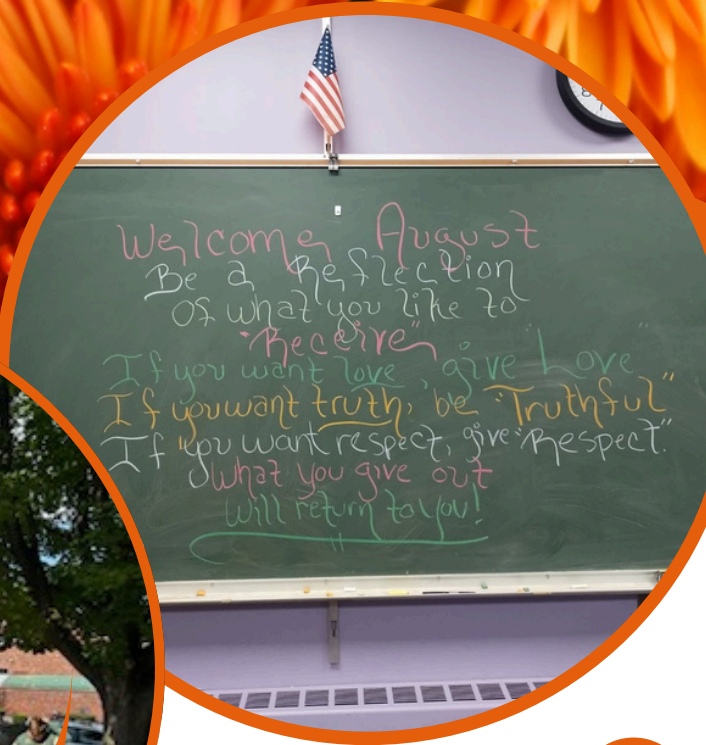 Welcome August
Be a Reflection
Of what you like to
"Receive"
If you want love, give "Love"
If you want truth, be "Truthful"
If you want respect, give "Respect."
What you give out
will return to you!